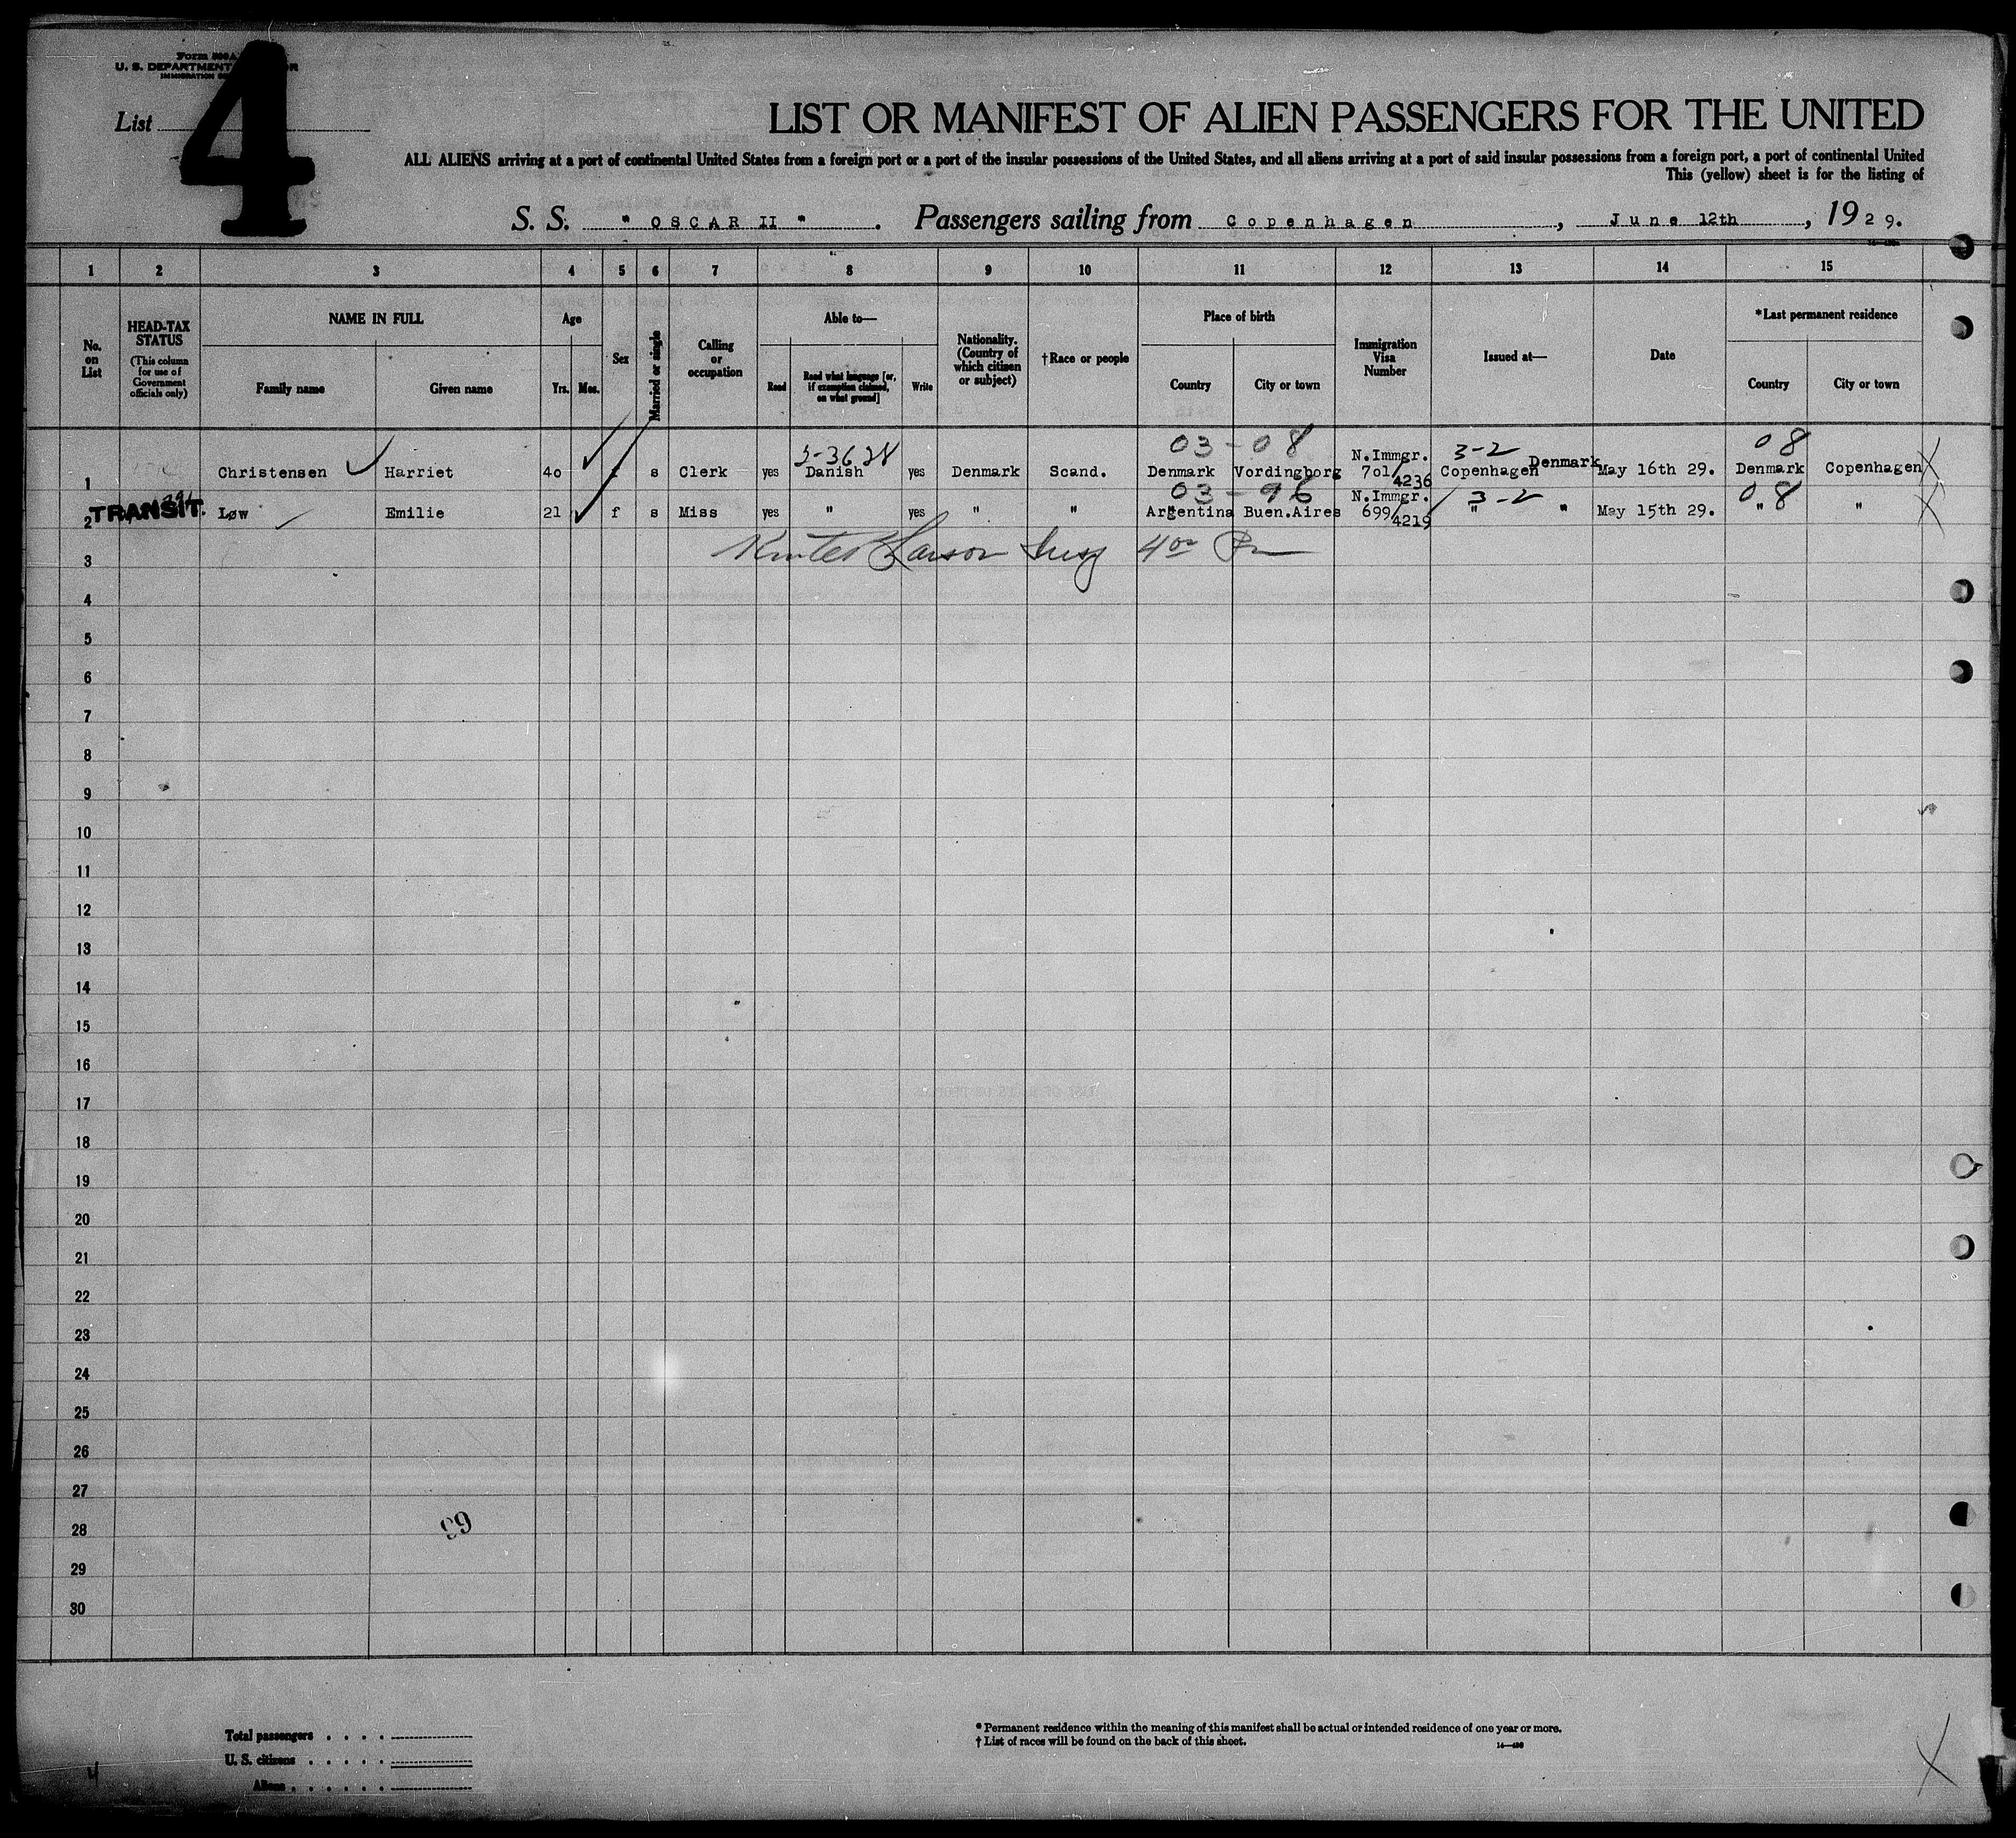 Form 500 A
U. S. DEPARTMENT OF LABOR
IMMIGRATION SERVICE
List 4
LIST OR MANIFEST OF ALIEN PASSENGERS FOR THE UNITED
ALL ALIENS arriving at a port of continental United States from a foreign port or a port of the insular possessions of the United States, and all aliens arriving at a port of said insular possessions from a foreign port, a port of continental United
This (yellow) sheet is for the listing of
S. S. " OSCAR II ". Passengers sailing from Copenhagen, June 12th, 1929.
1 2 3 4 5 6 7 8 9 10 11 12 13 14 15
No. on List
HEAD-TAX STATUS
(This column for use of Government officials only)
NAME IN FULL
Family name
Given name
Age
Yrs.
Mos.
Sex
Married or single
Calling or occupation
Able to—
Read
Read what language [or, if exemption claimed, on what ground]
Write
Nationality. (Country of which citizen or subject)
†Race or people
Place of birth
Country
City or town
Immigration Visa Number
Issued at—
Date
*Last permanent residence
Country
City or town
03 - 08
3-2
08
1 Christensen Harriet 4o f s Clerk yes Danish yes Denmark Scand. Denmark Vordingborg N.Immgr. 7o1/4236 Copenhagen Denmark May 16th 29. Denmark Copenhagen
03 - 96
3-2
08
2 TRANSIT. Løw Emilie 21 f s Miss yes " yes " " Argentina Buen.Aires N.Immgr. 699/4219 " " May 15th 29. " "
3
4
5
6
7
8
9
10
11
12
13
14
15
16
17
18
19
20
21
22
23
24
25
26
27
28
29
30
Total passengers . . . .
U. S. citizens . . . . .
Aliens . . . . . .
* Permanent residence within the meaning of this manifest shall be actual or intended residence of one year or more.
† List of races will be found on the back of this sheet.
4